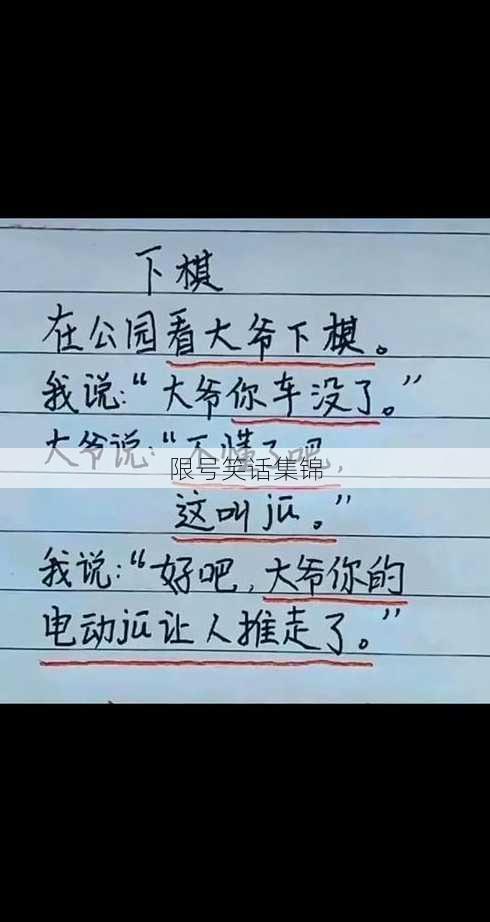 下棋
在公园看大爷下棋。
我说:“大爷你车没了。”
大爷说:“不懂了吧,
限号笑话集锦
这叫jū。”
我说:“好吧,大爷你的
电动jū让人推走了。”